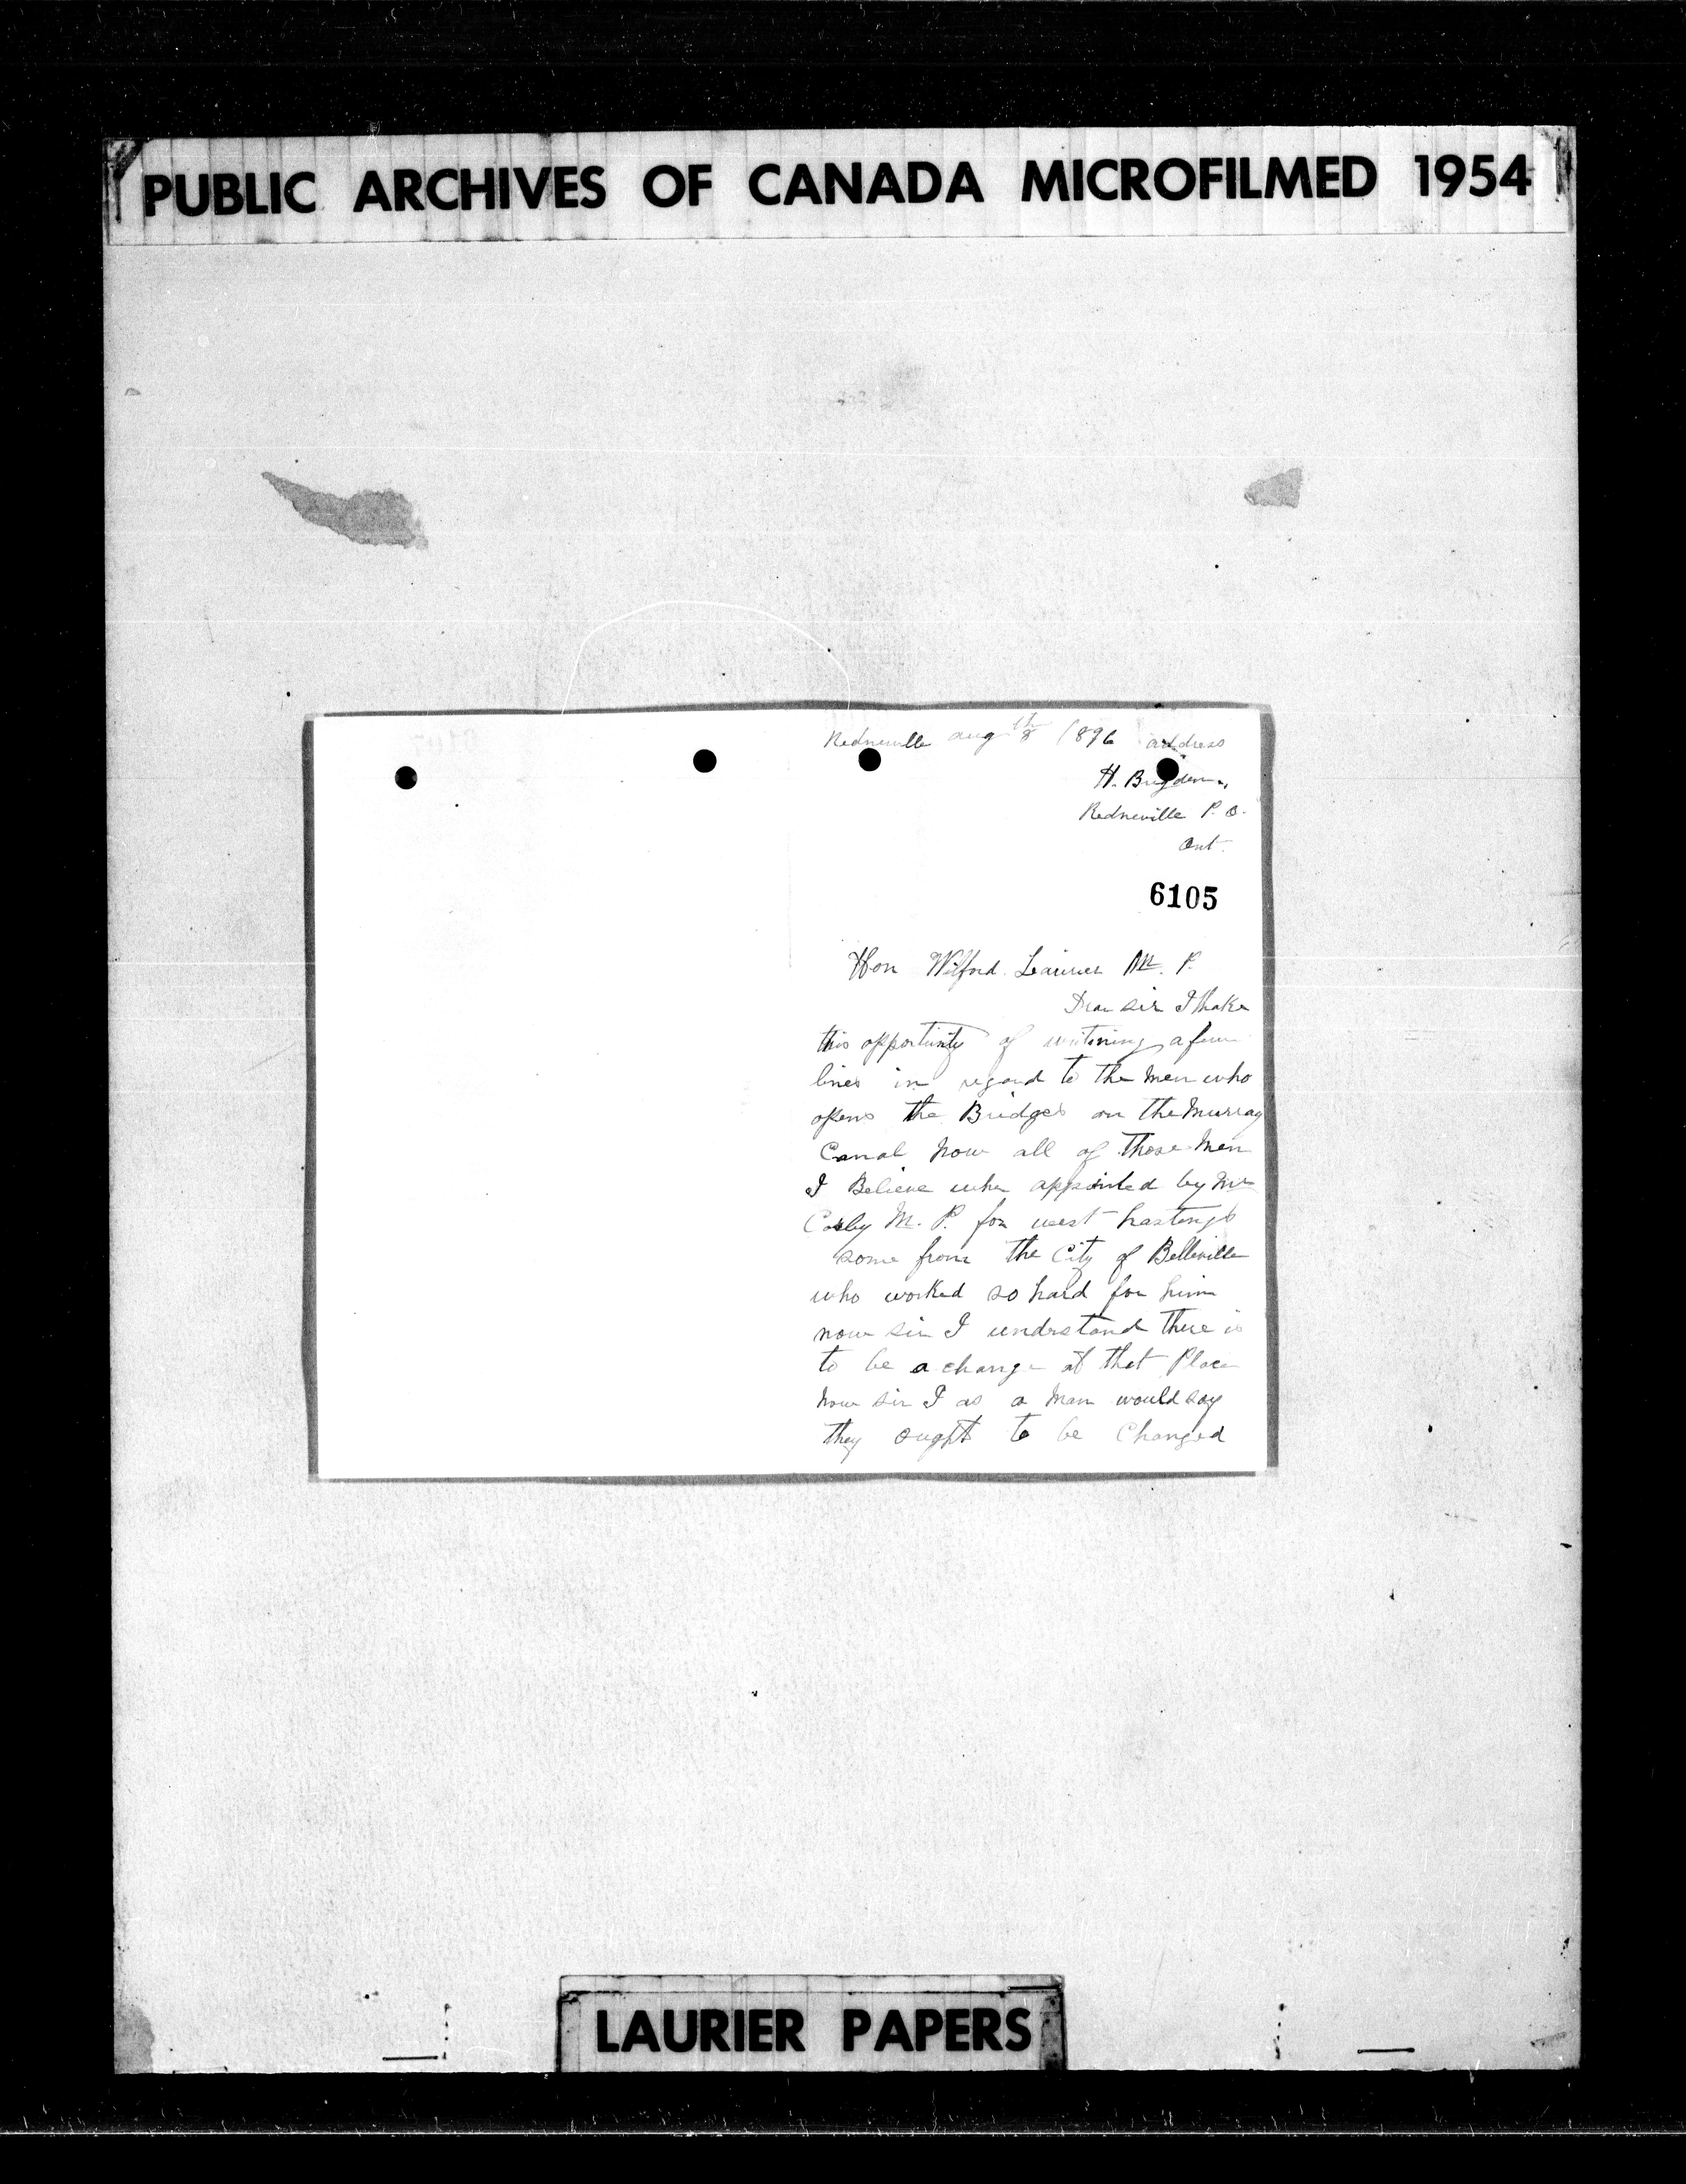 PUBLIC ARCHIVES OF CANADA MICROFILMED 1954
Rednerville aug 8th 1896 address
H. Brigden.,
Redneville P. O.
Ont.
6105
Hon Wilford Laurier M. P.
Dear sir I thake
this opportinty of writining a few
lines in regard to the men who
opens the Bridges on the Murray
Canal now all of those men
I Believe wher appointed by Mr
Corby M. P. for west hastings
some from the City of Belleville
who worked so hard for him
now sir I understand there is
to be a change at that Place
now sir I as a man would say
they ought to be Changed
LAURIER PAPERS